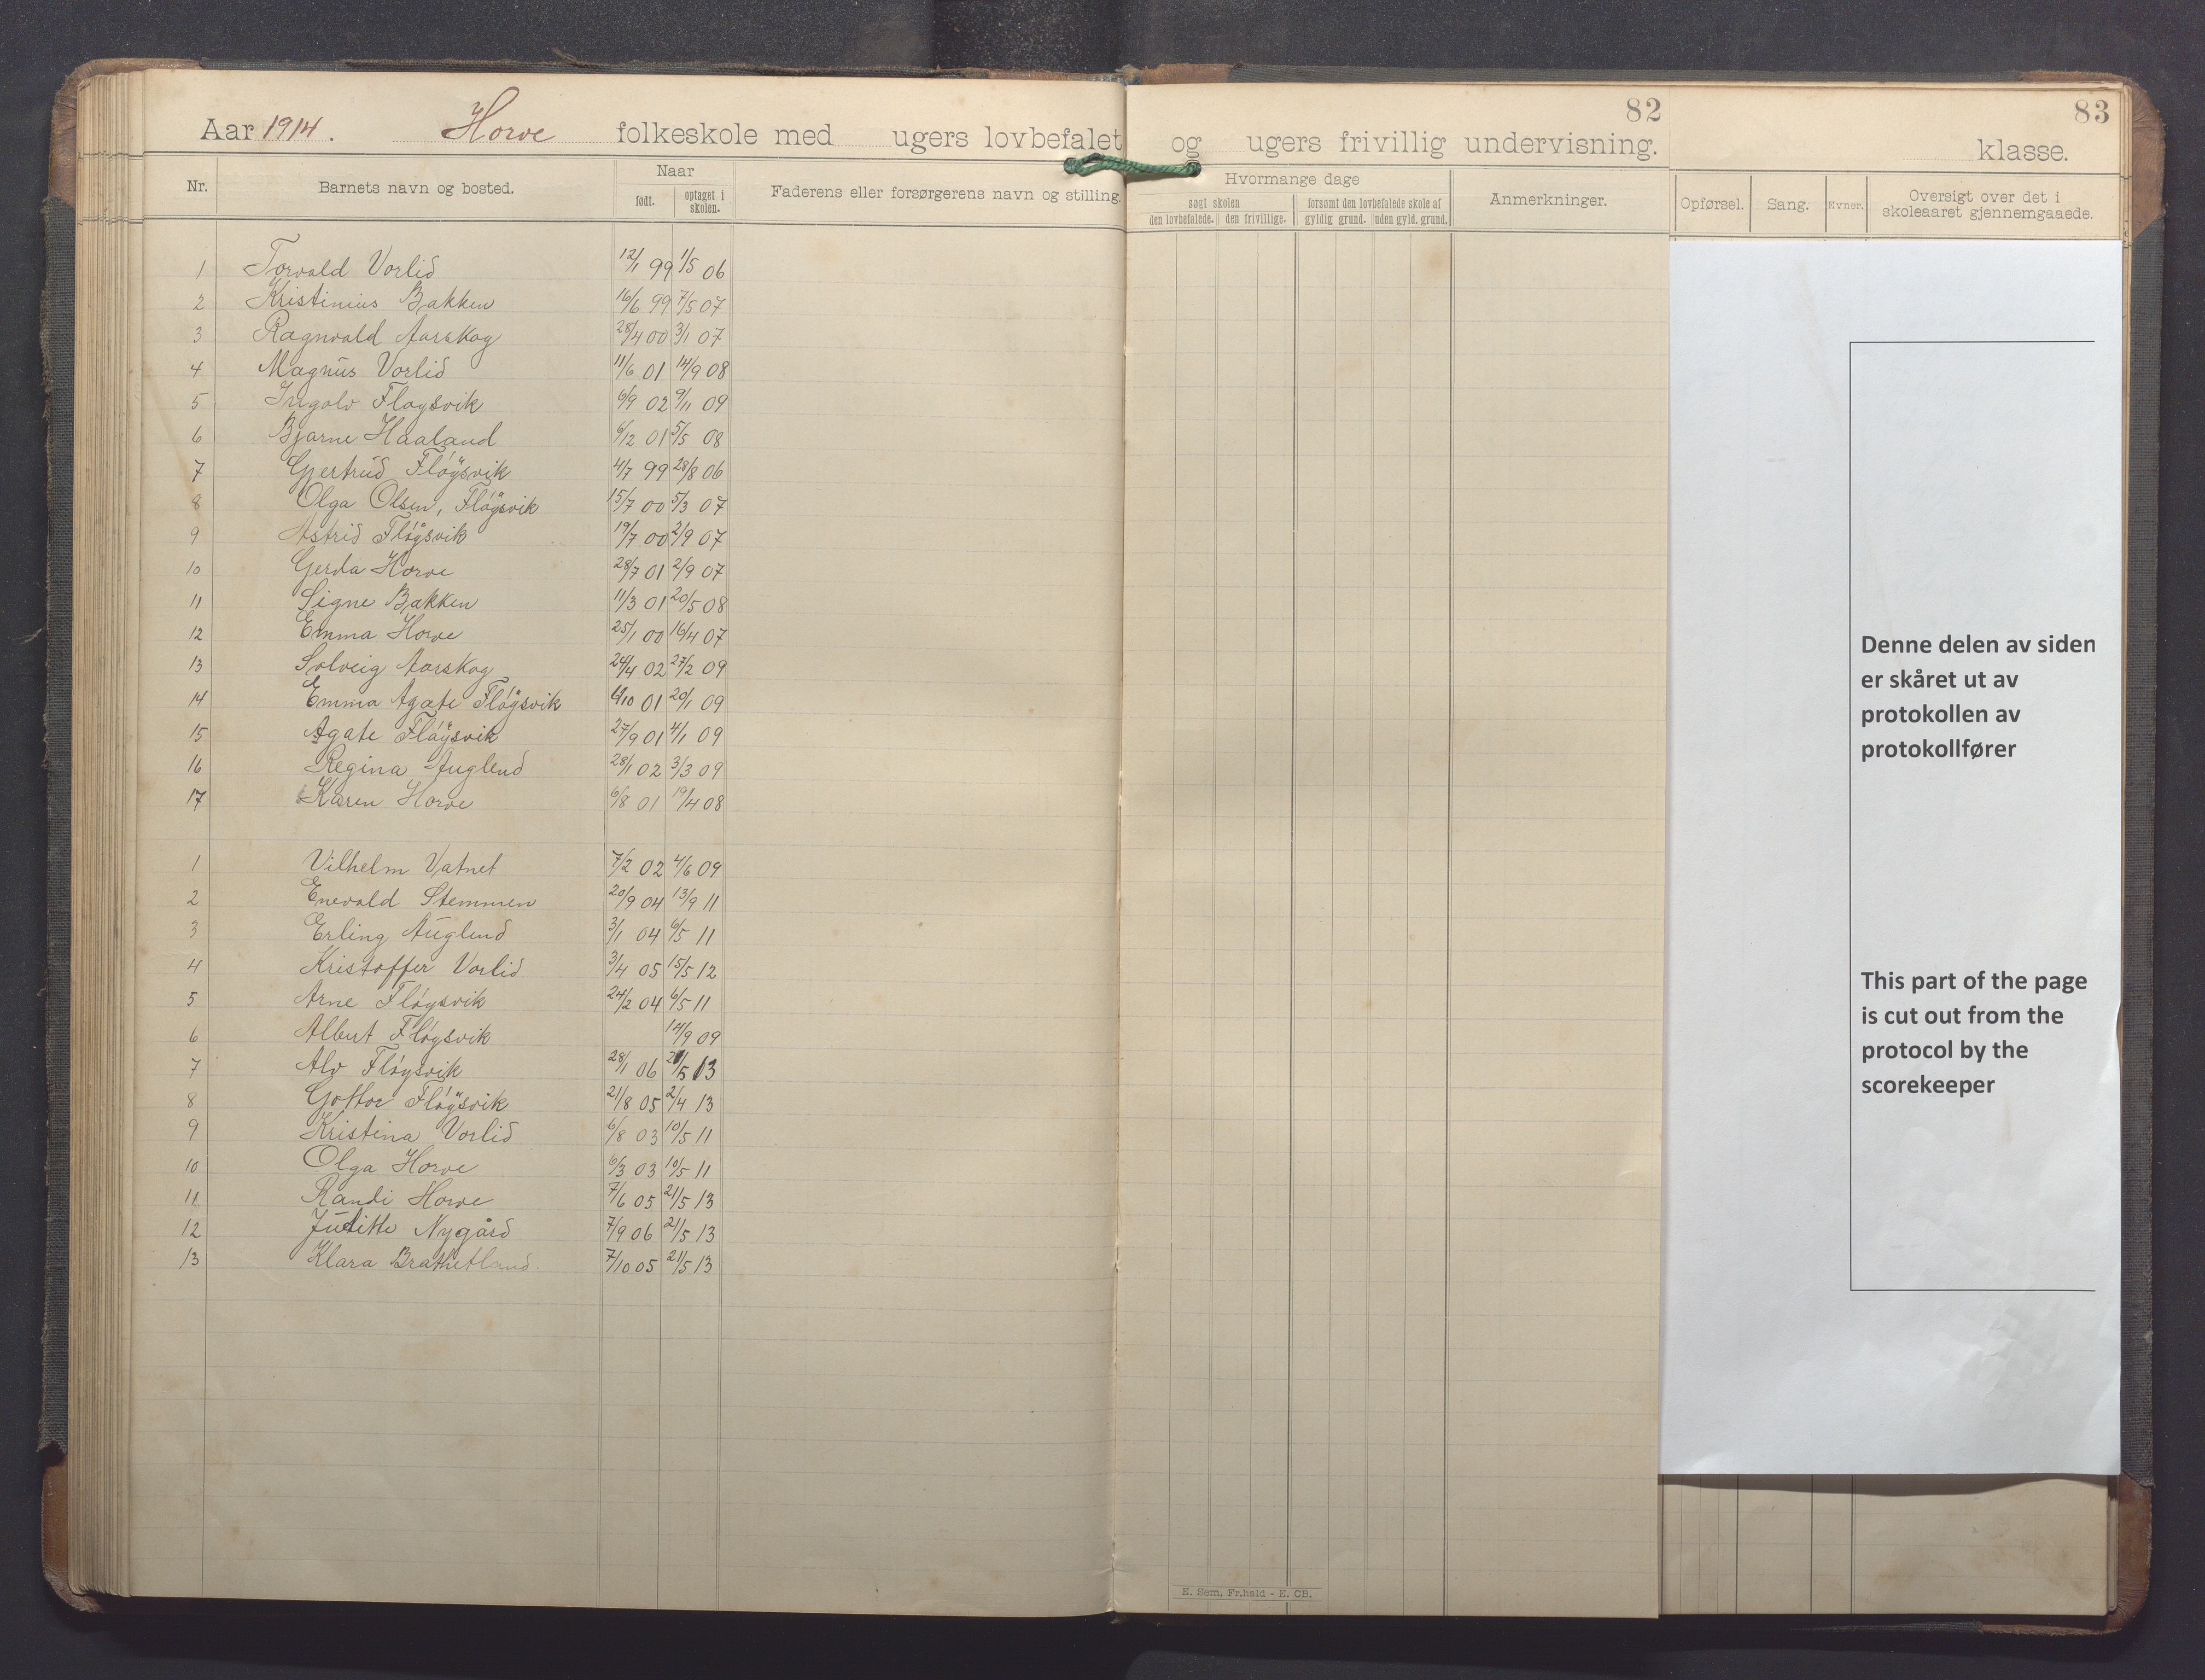 82
83
Aar 1914. Horve folkeskole med ugers lovbefalet og ugers frivillig undervisning. klasse.
Nr. Barnets navn og bosted. Naar født. optaget i skolen. Faderens eller forsørgerens navn og stilling. Hvormange dage søgt skolen den lovbefalede. den frivillige. forsømt den lovbefalede skole af gyldig grund. uden gyld. grund. Anmerkninger. Opførsel. Sang. Evner. Oversigt over det i skoleaaret gjennemgaaede.
1 Torvald Vorlid 12/1 99 1/5 06
2 Kristinius Bakken 16/6 99 7/5 07
3 Ragnvald Aarskog 28/4 00 3/1 07
4 Magnus Vorlid 11/6 01 14/9 08
5 Ingolv Fløysvik 6/9 02 9/11 09
6 Bjarne Haaland 6/12 01 5/5 08
7 Gjertrud Fløysvik 4/7 99 28/8 06
8 Olga Olsen, Fløysvik 15/7 00 5/3 07
9 Astrid Fløgsvik 19/7 00 2/9 07
10 Gerda Horve 28/7 01 2/9 07
11 Signe Bakken 11/3 01 20/5 08
12 Emma Horve 25/1 00 16/4 07
13 Solveig Aarskog 24/4 02 27/2 09
14 Emma Agate Fløgsvik 4/10 01 20/1 09
15 Agate Fløysvik 27/9 01 4/1 09
16 Regina Auglend 28/1 02 3/3 09
17 Karen Horve 6/8 01 19/4 08
1 Vilhelm Vatnet 7/2 02 4/6 09
2 Enevald Stemmen 20/9 04 13/9 11
3 Erling Auglend 3/1 04 6/5 11
4 Kristoffer Vorlid 3/4 05 15/5 12
5 Arne Fløysvik 24/2 04 6/5 11
6 Albert Fløgsvik 14/9 09
7 Alv Fløysvik 28/1 06 21/5 13
8 Gottor Fløysvik 21/8 05 2/4 13
9 Kristina Vorlid 6/8 03 10/5 11
10 Olga Horve 6/3 03 10/5 11
11 Randi Horve 7/6 05 21/5 13
12 Juditte Nygård 7/9 06 21/5 13
13 Klara Brathetland. 7/10 05 21/5 13
E. Sem, Fr.hald - E. CB.
Denne delen av siden
er skåret ut av
protokollen av
protokollfører
This part of the page
is cut out from the
protocol by the
scorekeeper